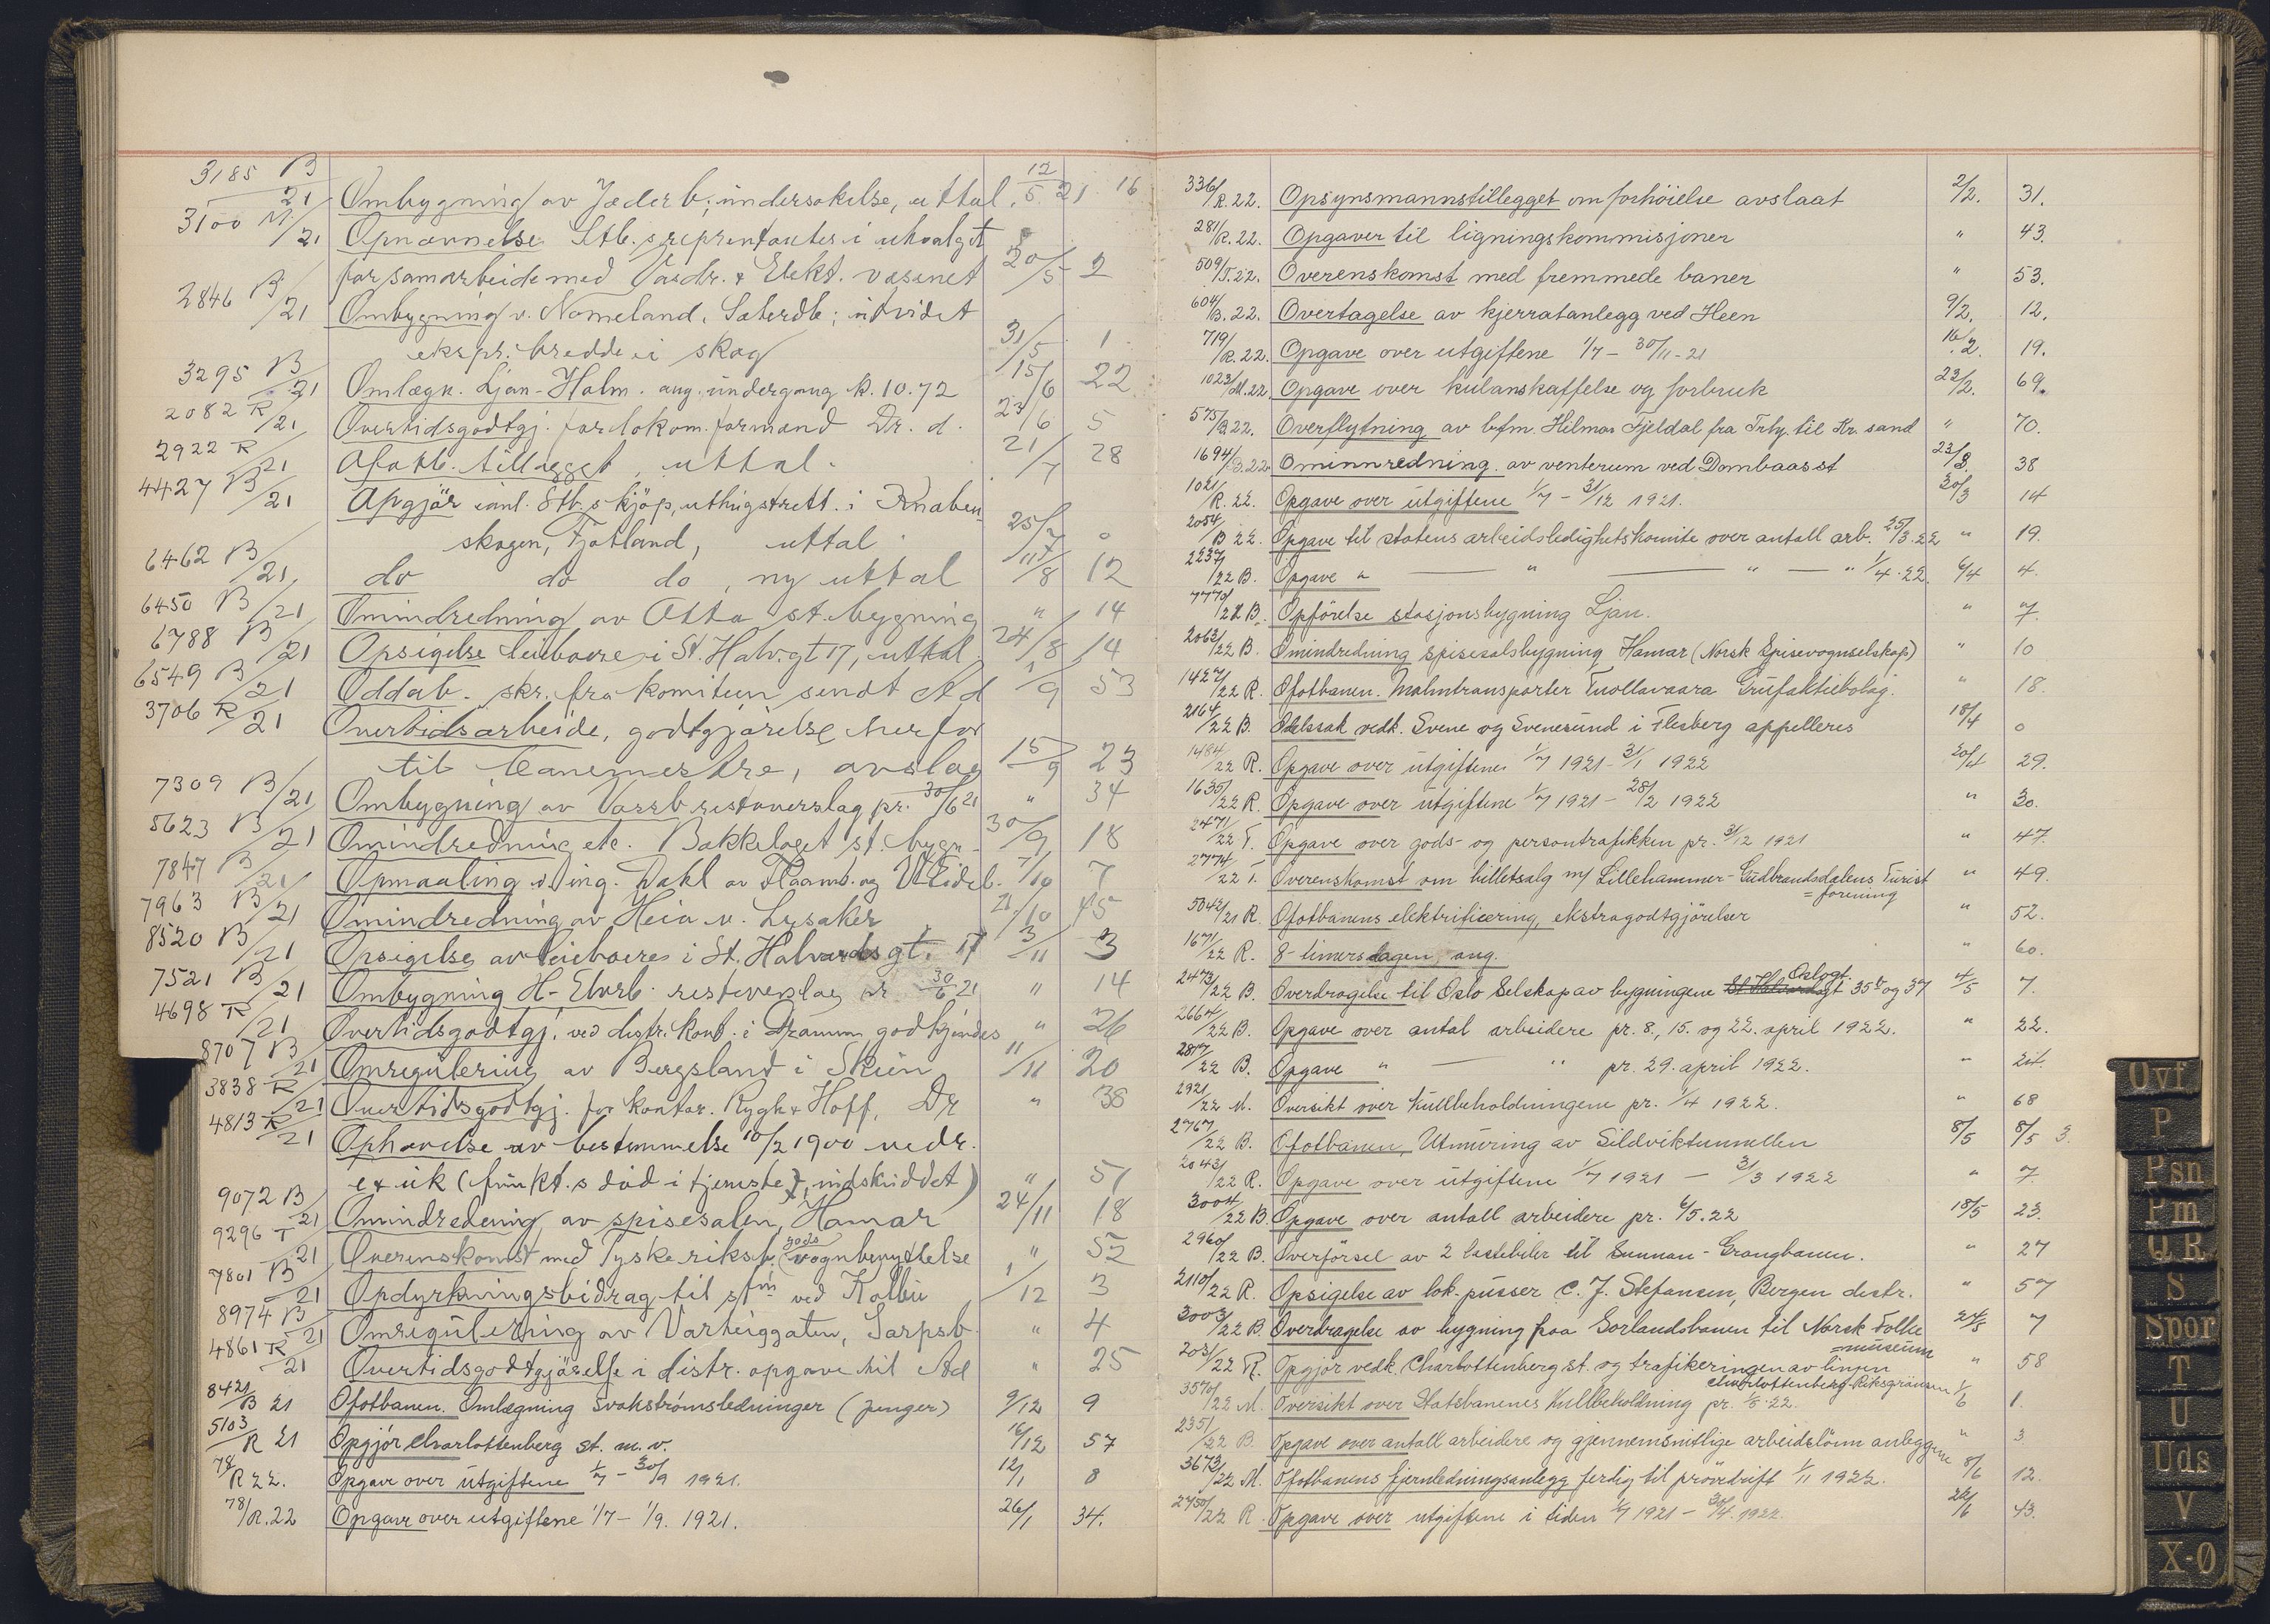 3185 B/21 Ombygning av Jæderb; undersøkelse, uttal. 12/5 21 16
3100 M/21 Opnævnelse Stb.s reprentanter i utvalget
for samarbeide med Vasdr. & Elekt. væsenet 20/5 2
2846 B/21 Ombygning v. Nomeland, Sæterdb; utvidet
ekspr. bredde i skog 31/5 1
3295 B/21 Omlægn. Ljan-Holm. ang. undergang k. 10.72 15/6 22
2082 R/21 Overtidsgodtgj. for lokom. formand Dr. d. 23/6 5
2922 R/21 Ofotb. tillægget, uttal. 21/7 28
4427 B/21 Opgjör anl. Stb.s kjöp, uthugstrett. i Knaben-
skogen, Fjotland, uttal 25/7 0
6462 B/21 do do do, ny uttal 11/8 12
6450 B/21 Omindredning av Otta st. bygning " 14
6788 B/21 Opsigelse leieboere i St. Halv.gt 17, uttal 24/8 14
6549 B/21 Oddab. skr. fra komiteen sendt Ad 1/9 53
3706 R/21 Overtidsarbeide, godtgjörelse herfor
til banemestre, avslag 15/9 23
7309 B/21 Ombygning av Vossb restoverslag pr. 30/6 21 " 34
8623 B/21 Omindredning etc. Bakkelaget st. bygn. 30/9 18
7847 B/21 Opmaaling v. ing. Dahl av Flaamb. og 7/10 7
7963 B/21 Omindredning av Heia v. Lysaker 21/10 45
8520 B/21 Opsigelse av leieboere i St. Halvardsgt. 17 3/11 3
7521 B/21 Ombygning H-Elvrb. restoverslag pr 30/6 21 " 14
4698 R/21 Overtidsgodtgj. ved distr. kont. i Dramm. godkjendes " 26
8707 B/21 Omregulering av Bergsland i Skien 11/11 20
3838 R/21 Overtidsgodtgj. for kontor. Rygh & Hoff, Dr " 38
4813 R/21 Ophævelse av bestemmelse 10/2 1900 vedr.
(funkt.s död i tjeneste, indskuddet) " 51
9072 B/21 Omindredning av spisesalen, Hamar 24/11 18
9296 T/21 Overenskomst med Tyske riksb. gods vognbenyttelse " 52
7801 B/21 Opdyrkningsbidrag til stm ved Kolbu 1/12 3
8974 B/21 Omregulering av Varteiggaten, Sarpsb. " 4
4861 R/21 Overtidsgodtgjörelse i distr. opgave til Ad " 25
8421/B 21 Ofotbanen. Omlægning svakströmsledninger (penger) 9/12 9
5103/R 21 Opgjör Charlottenberg st. m.v. 16/12 57
78/R 22. Opgave over utgiftene 1/7 - 30/9 1921. 12/1 8
78/R.22 Opgave over utgiftene 1/7 - 1/9. 1921. 26/1 34.
336/R.22. Opsynsmannstillegget om forhöielse avslaat 2/2. 31.
281/R.22. Opgaver til ligningskommisjoner " 43.
509/T.22. Overenskomst med fremmede baner " 53.
604/B.22. Overtagelse av kjerratanlegg ved Heen 9/2. 12.
719/R.22. Opgave over utgiftene 1/7 - 30/11-21 16/2. 19.
1023/M.22. Opgave over kulanskaffelse og forbruk 23/2. 69.
575/B22. Overflytning av bfm. Hilmar Fjeldal fra Trhj. til Kr. sand " 70.
1694/B.22 Ominnredning av venterum ved Dombaas st 23/3. 38
1021/R.22. Opgave over utgiftene 1/7 - 31/12 1921. 30/3 14
2054/B 22. Opgave til statens arbeidsledighetskomite over antall arb. 25/3.22 " 19.
2237/22 B. Opgave " — " — " — " 1/4.22. 6/4 4.
7770/21 B. Opförelse stasjonsbygning Ljan. " 7.
2063/22 B. Omindredning spisesalsbygning Hamar (Norsk Spisevognselskap) " 10
1427/22 R. Ofotbanen. Malmtransporter Tuollavaara Grufaktiebolag. " 18.
2164/22 B. Odelssak vedk. Svene og Svenesund i Flesberg appelleres 18/4 0
1484/22 R. Opgave over utgiftene 1/7 1921 - 31/1 1922 20/4 29.
1635/22 R. Opgave over utgiftene 1/7 1921 - 28/2 1922 " 30.
2471/22 T. Opgave over gods- og persontrafikken pr. 31/12 1921 " 47.
2774/22 T. Overenskomst om billetsalg m/ Lillehammer-Gudbrandsdalens Turist
=forening " 49.
5042/21 R. Ofotbanens elektrificering, ekstragodtgjörelser " 52.
1671/22 R. 8-timersdagen, ang. " 60.
2473/22 B. Overdragelse til Oslo Selskap av bygningene St Halvardsgt Oslogt. 35 og 37 4/5 7.
2664/22 B. Opgave over antal arbeidere pr. 8., 15. og 22. april 1922. " 22.
2817/22 B. Opgave " — " pr. 29. april 1922. " 24.
2921/22 M. Oversikt over kullbeholdningene pr. 1/4 1922. " 68
2767/22 B. Ofotbanen, Utmuring av Sildviktunnellen 8/5 8/5 3.
2043/22 R. Opgave over utgiftene 1/7 1921 - 31/3 1922 " 7.
3004/22 B. Opgave over antall arbeidere pr. 6/5.22 18/5 23.
2960/22 B. Overförsel av 2 lastebiler til Sunnan-Grongbanen. " 27
2110/22 R. Opsigelse av lok.pusser C. J. Stefansen, Bergen distr. " 57
3003/22 B. Overdragelse av bygning paa Sorlandsbanen til Norsk Folke
=museum 24/5 7
203/22 R. Opgjör vedk. Charlottenberg st. og trafikeringen av linjen
Charlottenberg-Riksgränsen " 58
3570/22 M. Oversikt over Statsbanenes Kullbeholdning pr. 1/5.22. 1/6 1.
2351/22 B. Opgave over antall arbeidere og gjennemsnitlige arbeidslönn anleggene " 3
3673/22 M. Ofotbanens fjernledningsanlegg ferdig til prövedrift 1/11 1922. 8/6 12.
2750/22 R. Opgave over utgiftene i tiden 1/7 1921 - 30/4 1922. 22/6 43.
Ovf
P
Psn
Pm
Q R
S
Spor
T
U
Uds
V
X-Ø